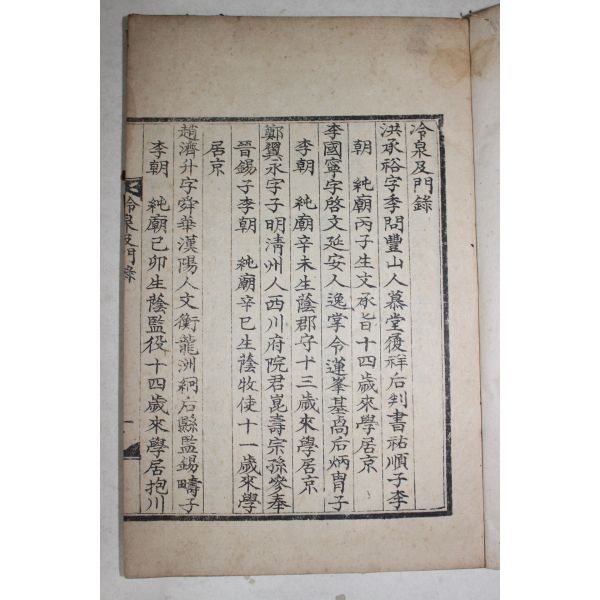 冷泉及門錄
洪承裕字季問豐山人慕堂履祥后判書祐順子李
朝 純廟丙子生文承旨十四歲來學居京
李國寧字啓文延安人逸掌令蓮峯基卨后炳胄子
李朝 純廟辛未生蔭郡守十三歲來學居京
鄭翼永字子明淸州人西川府院君崑壽宗孫參奉
晉錫子李朝 純廟辛巳生蔭牧使十一歲來學
居京
趙濟升字舜華漢陽人文衡龍洲絅后縣監錫疇子
李朝 純廟己卯生蔭監役十四歲來學居抱川
冷泉及門錄
一